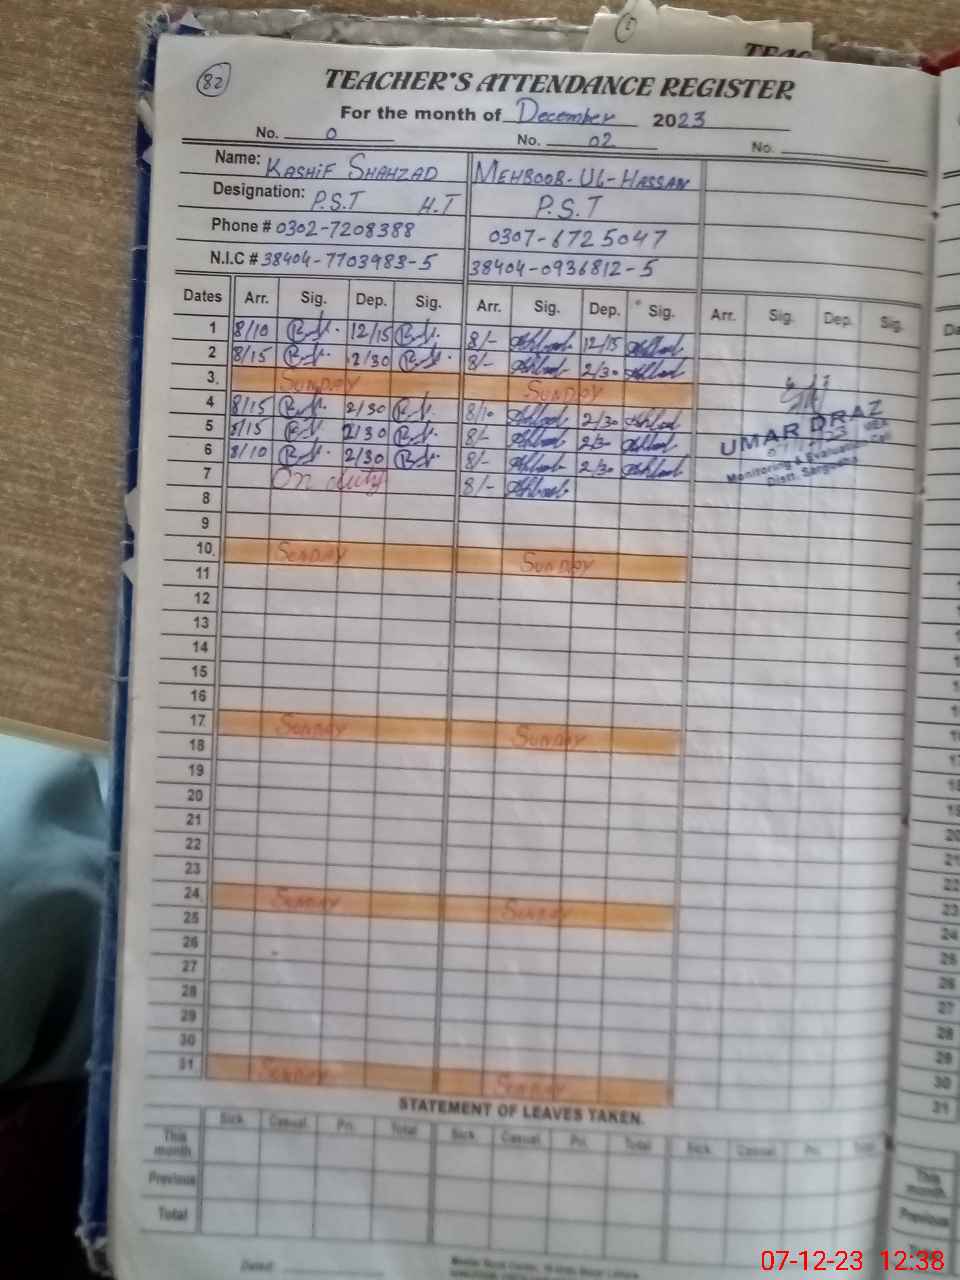 TEAC
82
TEACHER'S ATTENDANCE REGISTER
For the month of December 2023
No. 0 No. 02 No.
Name: KASHIF SHAHZAD MEHBOOB-UL-HASSAN
Designation: P.S.T H.T P.S.T
Phone # 0302-7208388 0307-6725047
N.I.C # 38404-7703983-5 38404-0936812-5
Dates Arr. Sig. Dep. Sig. Arr. Sig. Dep. Sig. Arr. Sig. Dep. Sig.
1 8/10 12/15 8/- 12/15
2 8/15 2/30 8/- 2/30
3. SUNDAY SUNDAY
4 8/15 2/30 8/10 2/30
5 8/15 2/30 8/- 2/30
6 8/10 2/30 8/- 2/30
7 On duty 8/-
UMAR DRAZ
MEA
Monitoring & Evaluation Cell
Distt. Sargodha
8
9
10. SUNDAY SUNDAY
11
12
13
14
15
16
17 SUNDAY SUNDAY
18
19
20
21
22
23
24 SUNDAY SUNDAY
25
26
27
28
29
30
31 SUNDAY SUNDAY
STATEMENT OF LEAVES TAKEN.
Sick. Casual. Pri. Total Sick. Casual. Pri. Total Sick. Casual. Pri. Total
This month
Previous
Total
Dated:
07-12-23 12:38